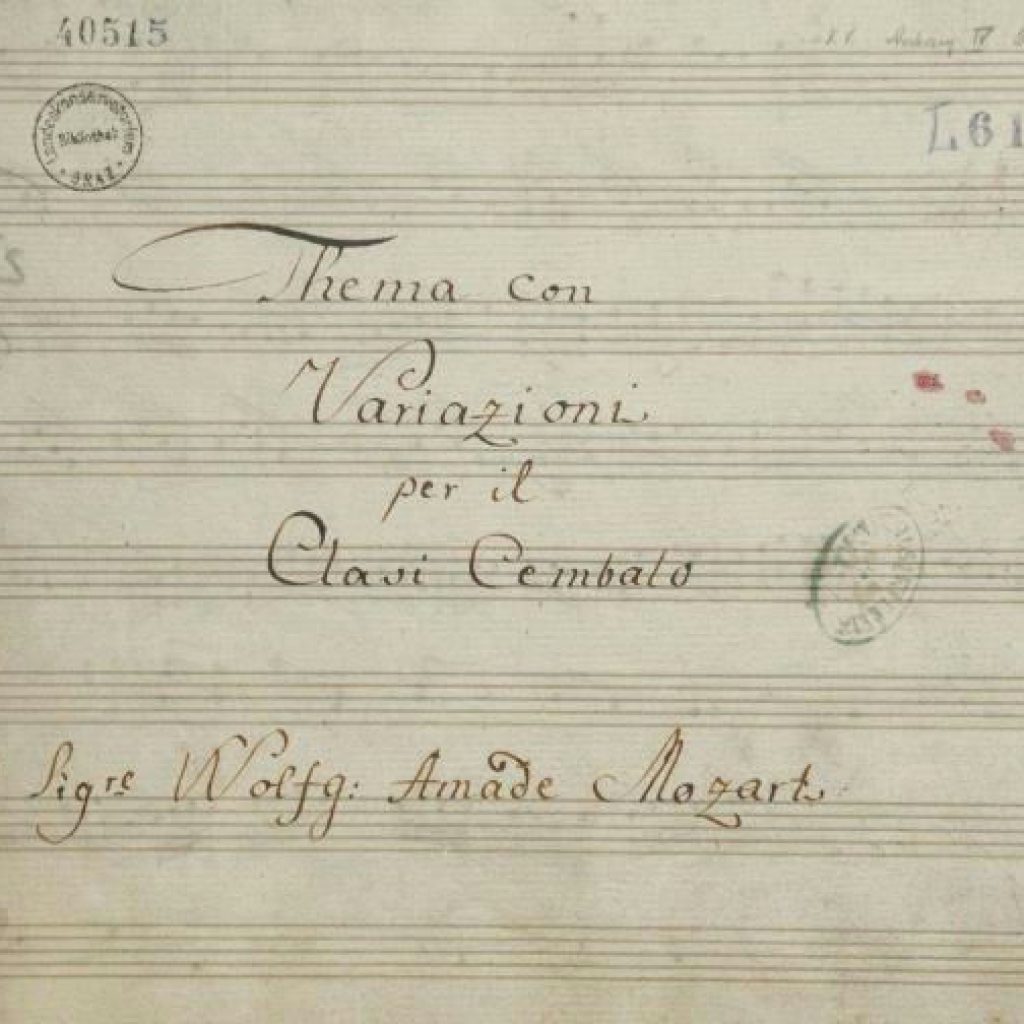 40515
Landeskonservatorium
Bibliothek
GRAZ
L61
Thema con
Variazioni
per il
Clavi Cembalo
Sigre Wolfg: Amade Mozart